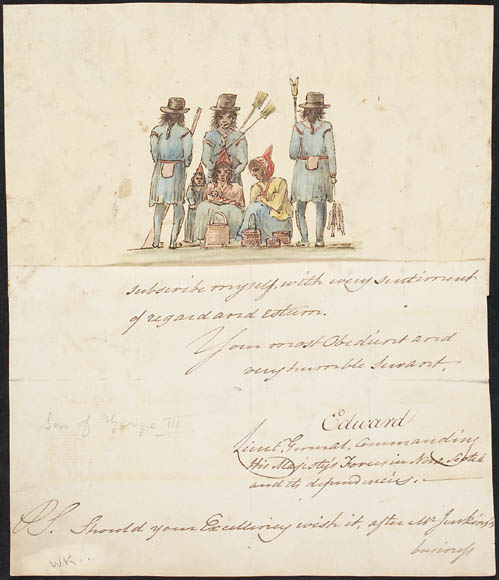 subscribe myself, with every sentiment
of regard and esteem.
Your most Obedient and
very humble servant,
Son of George III
Edward
Lieut. General. Commanding
His Majesty's Forces in Nova Scotia
and its dependencies. -
P.S. Should your Excellency wish it, after Mr Jenkins's
business
WK...